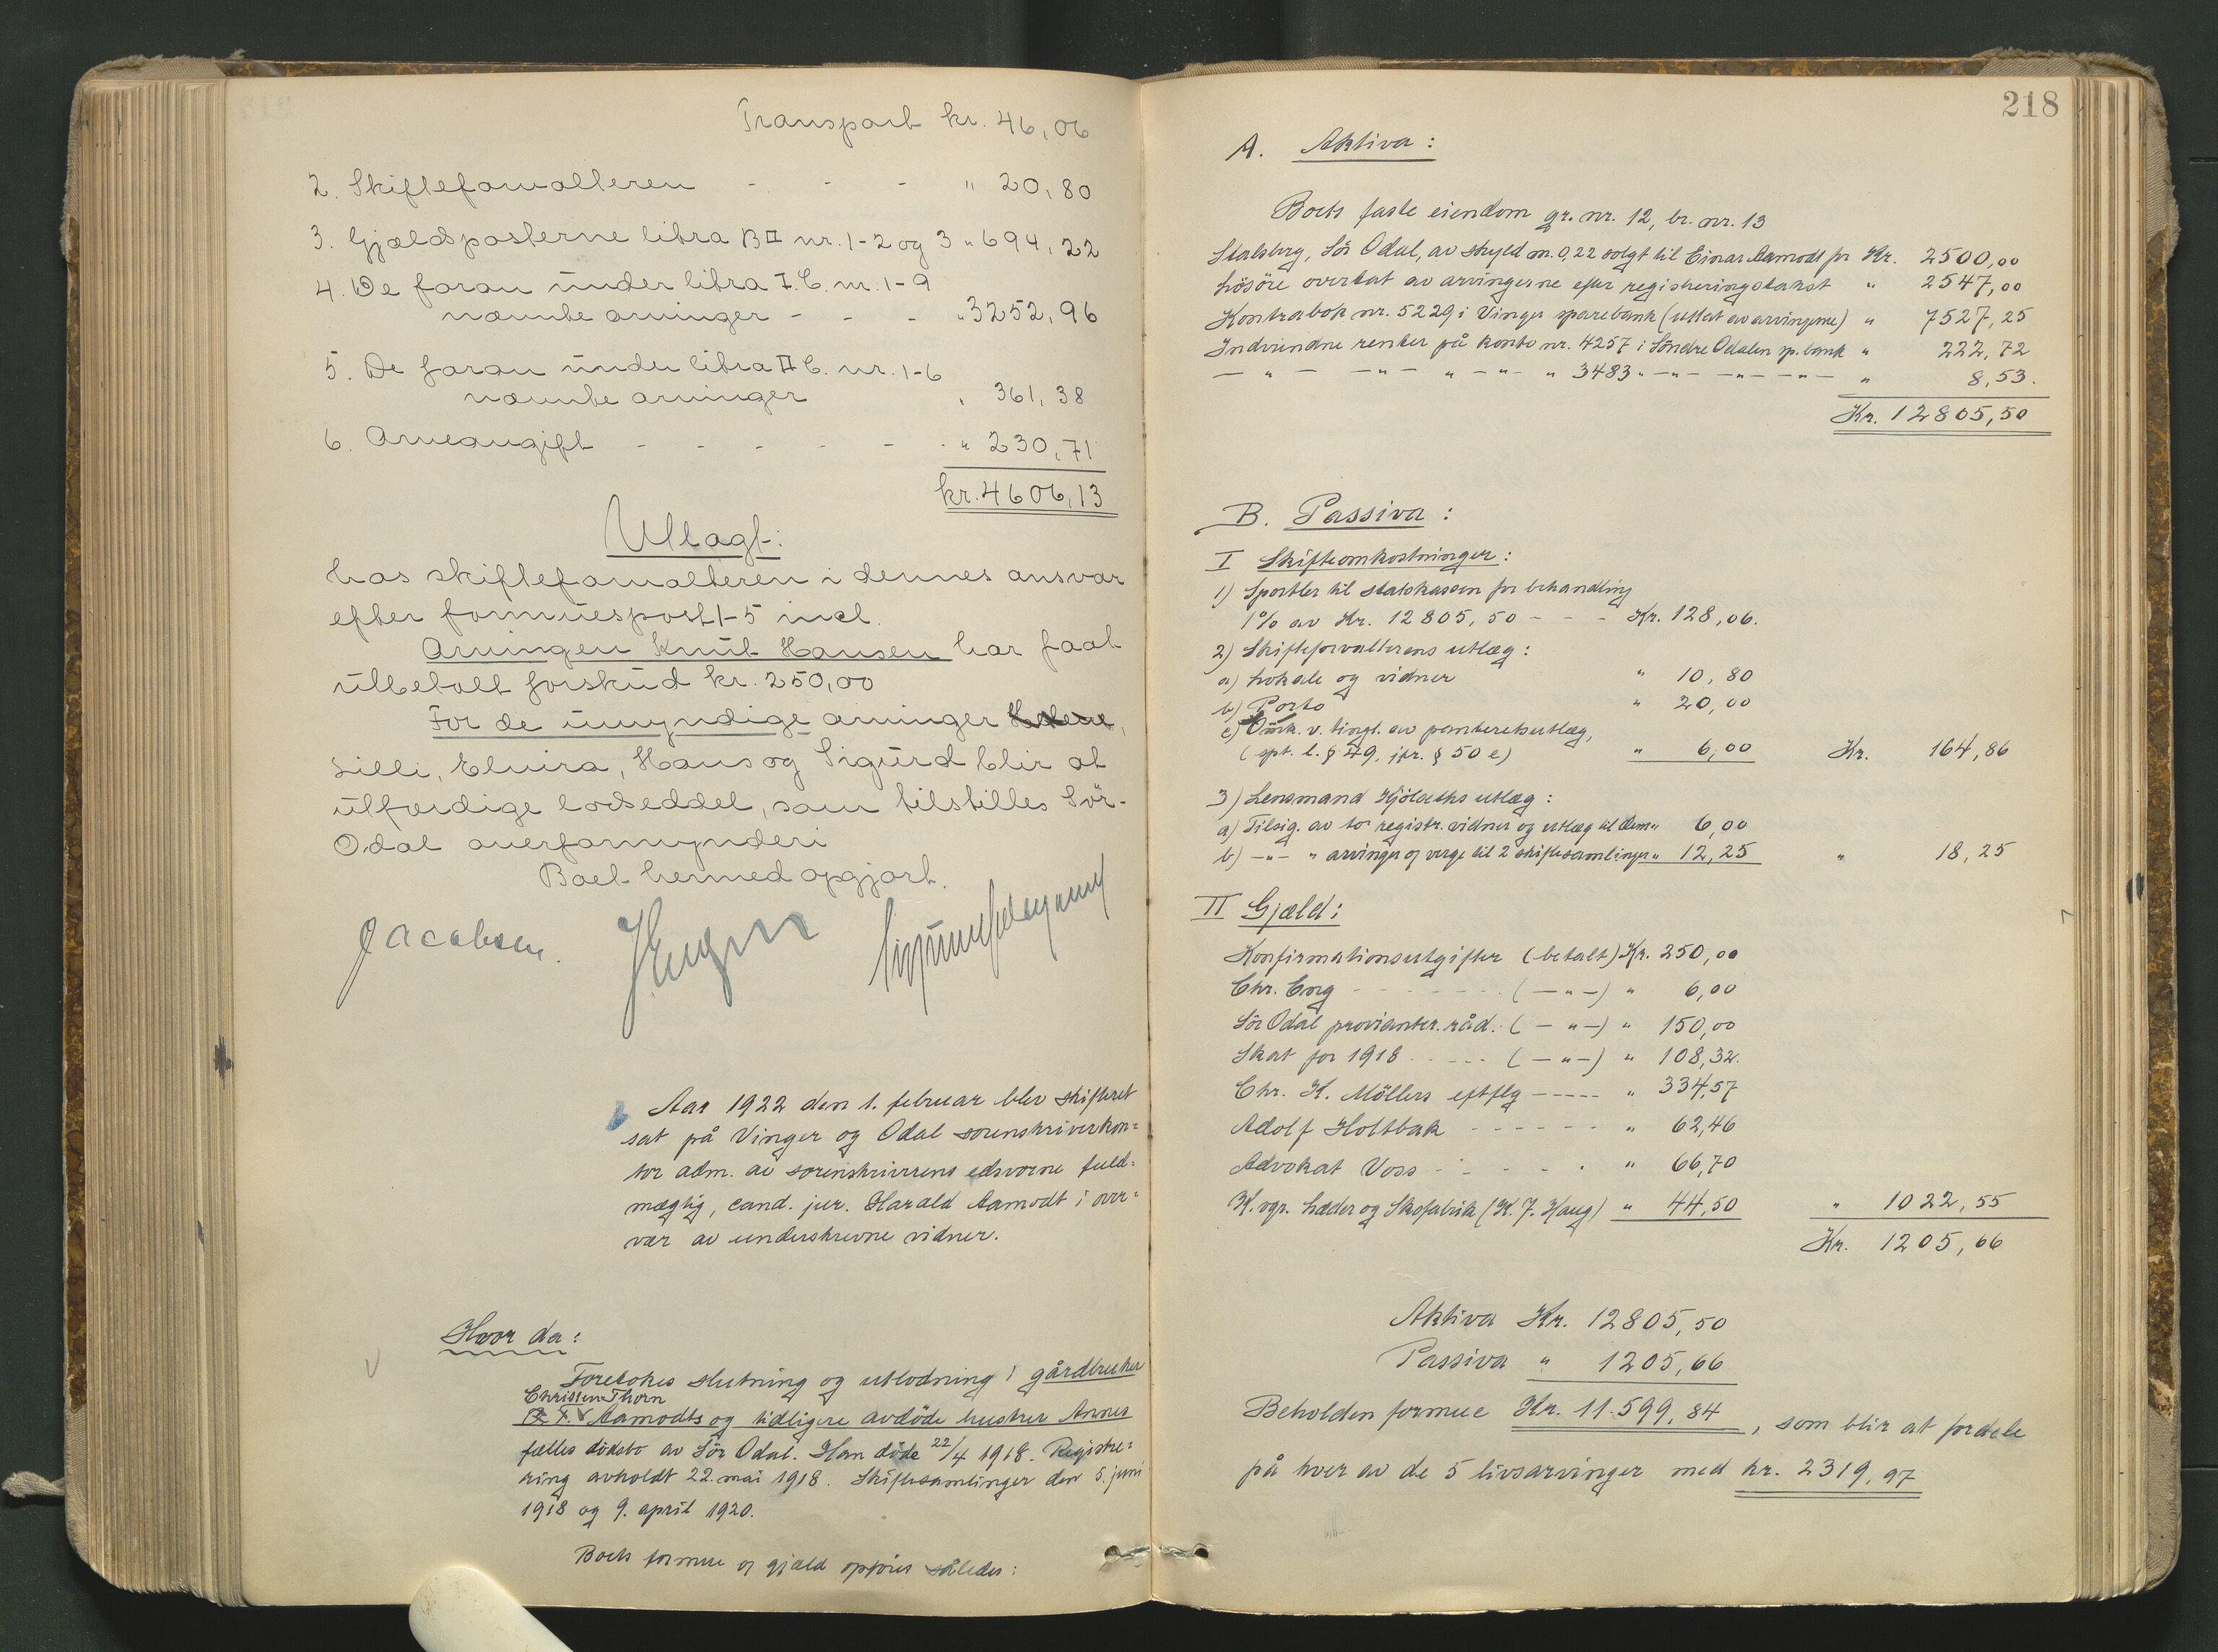 Transport kr. 46,06
2. Skifteforvalteren - - - " 20,80
3. Gjældsposterne litra B II nr. 1-2 og 3 " 694,22
4. De foran under litra I. C. nr. 1-9
nævnte arvinger - - - " 3252,96
5. De foran under litra II C. nr. 1-6
nævnte arvinger " 361,38
6. Arveavgift - - - - - " 230,71
kr. 4606,13
Utlagt:
hos skifteforvalteren i dennes ansvar
efter formuespost 1-5 incl.
Arvingen Knut Hansen har faat
utbetalt forskud kr. 250,00
For de umyndige arvinger Helene,
Lilli, Elvira, Hans og Sigurd blir at
utfærdige lodseddel, som tilstilles Sör-
Odal overformynderi
Boet hermed opgjort.
Jacobsen.
Aar 1922 den 1. februar blev skifteret
sat på Vinger og Odal sorenskriverkon=
tor adm. av sorenskriverens edsvorne fuld=
mægtig, cand. jur. Harald Aamodt i over=
vær av underskrevne vidner.
Hvor da:
Foretokes slutning og utlodning i gårdbruker
Christen Thorn
Aamodts og tidligere avdöde hustru Annes
fælles dödsbo av Sör Odal. Han döde 22/4 1918. Registre=
ring avholdt 22. mai 1918. Skiftesamlinger den 5. juni
1918 og 9. april 1920.
Boets formue og gjæld opföres således:
218
A. Aktiva:
Boets faste eiendom gr. nr. 12, br. nr. 13
Stalsberg, Sör Odal, av skyld m. 0,22 solgt til Einar Aamodt for Kr. 2500,00
Lösöre overtat av arvingerne efter registreringstakst " 2547,00
Kontrabok nr. 5229 i Vinger sparebank (uttat av arvingerne) " 7527,25
Indvundne renter på konto nr. 4257 i Söndre Odalen sp. bank " 222,72
— " — — " — " — " — " 3483 " — " — — " — " — " 8,53.
Kr. 12805,50
B. Passiva:
I Skifteomkostninger:
1) Sportler til statskassen for behandling
1% av Kr. 12805,50 - - - Kr. 128,06.
2) Skifteforvalterens utlæg:
a) Lokale og vidner " 10,80
b) Porto " 20,00
c) Omk. v. tingl. av panteretsutlæg,
(spt. l. § 49, jfr. § 50 e) " 6,00 Kr. 164,86
3) Lensmand Kjölseths utlæg:
a) Tilsig. av to registr. vidner og utlæg til dem " 6,00
b) — " — " arvinger og verge til 2 skiftesamlinger " 12,25 " 18,25
II Gjæld:
Konfirmationsutgifter (betalt) Kr. 250,00
Chr. Eng - - - - - (— " —) " 6,00
Sör Odal provianter. råd. (— " —) " 150,00
Skat for 1918 - - - - (— " —) " 108,32.
Chr. H. Möllers eftflg - - - - - " 334,57
Adolf Holtbak - - - - - - " 62,46
Advokat Voss - - - - - " 66,70
K.vgr. Læder og Skofabrik (K. J. Haug) " 44,50 " 1022,55
Kr. 1205,66
Aktiva Kr. 12805,50
Passiva " 1205,66
Beholden formue Kr. 11.599,84, som blir at fordele
på hver av de 5 livsarvinger med kr. 2319,97